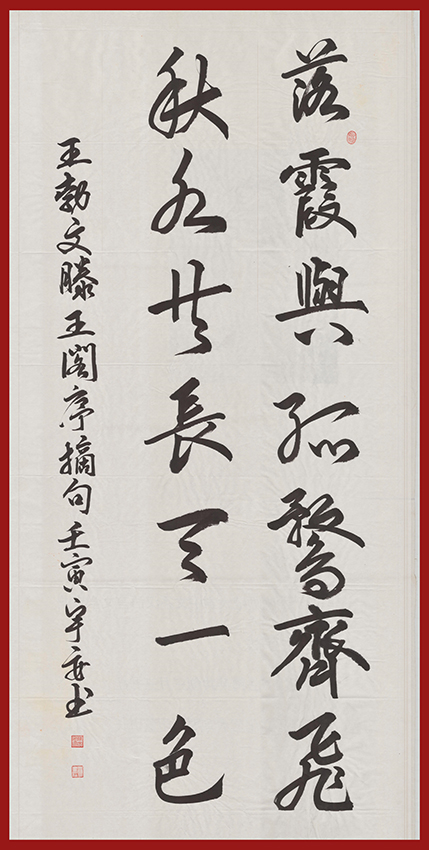 落霞與孤鶩齊飛
秋水共長天一色
王勃文滕王閣序摘句壬寅宇书